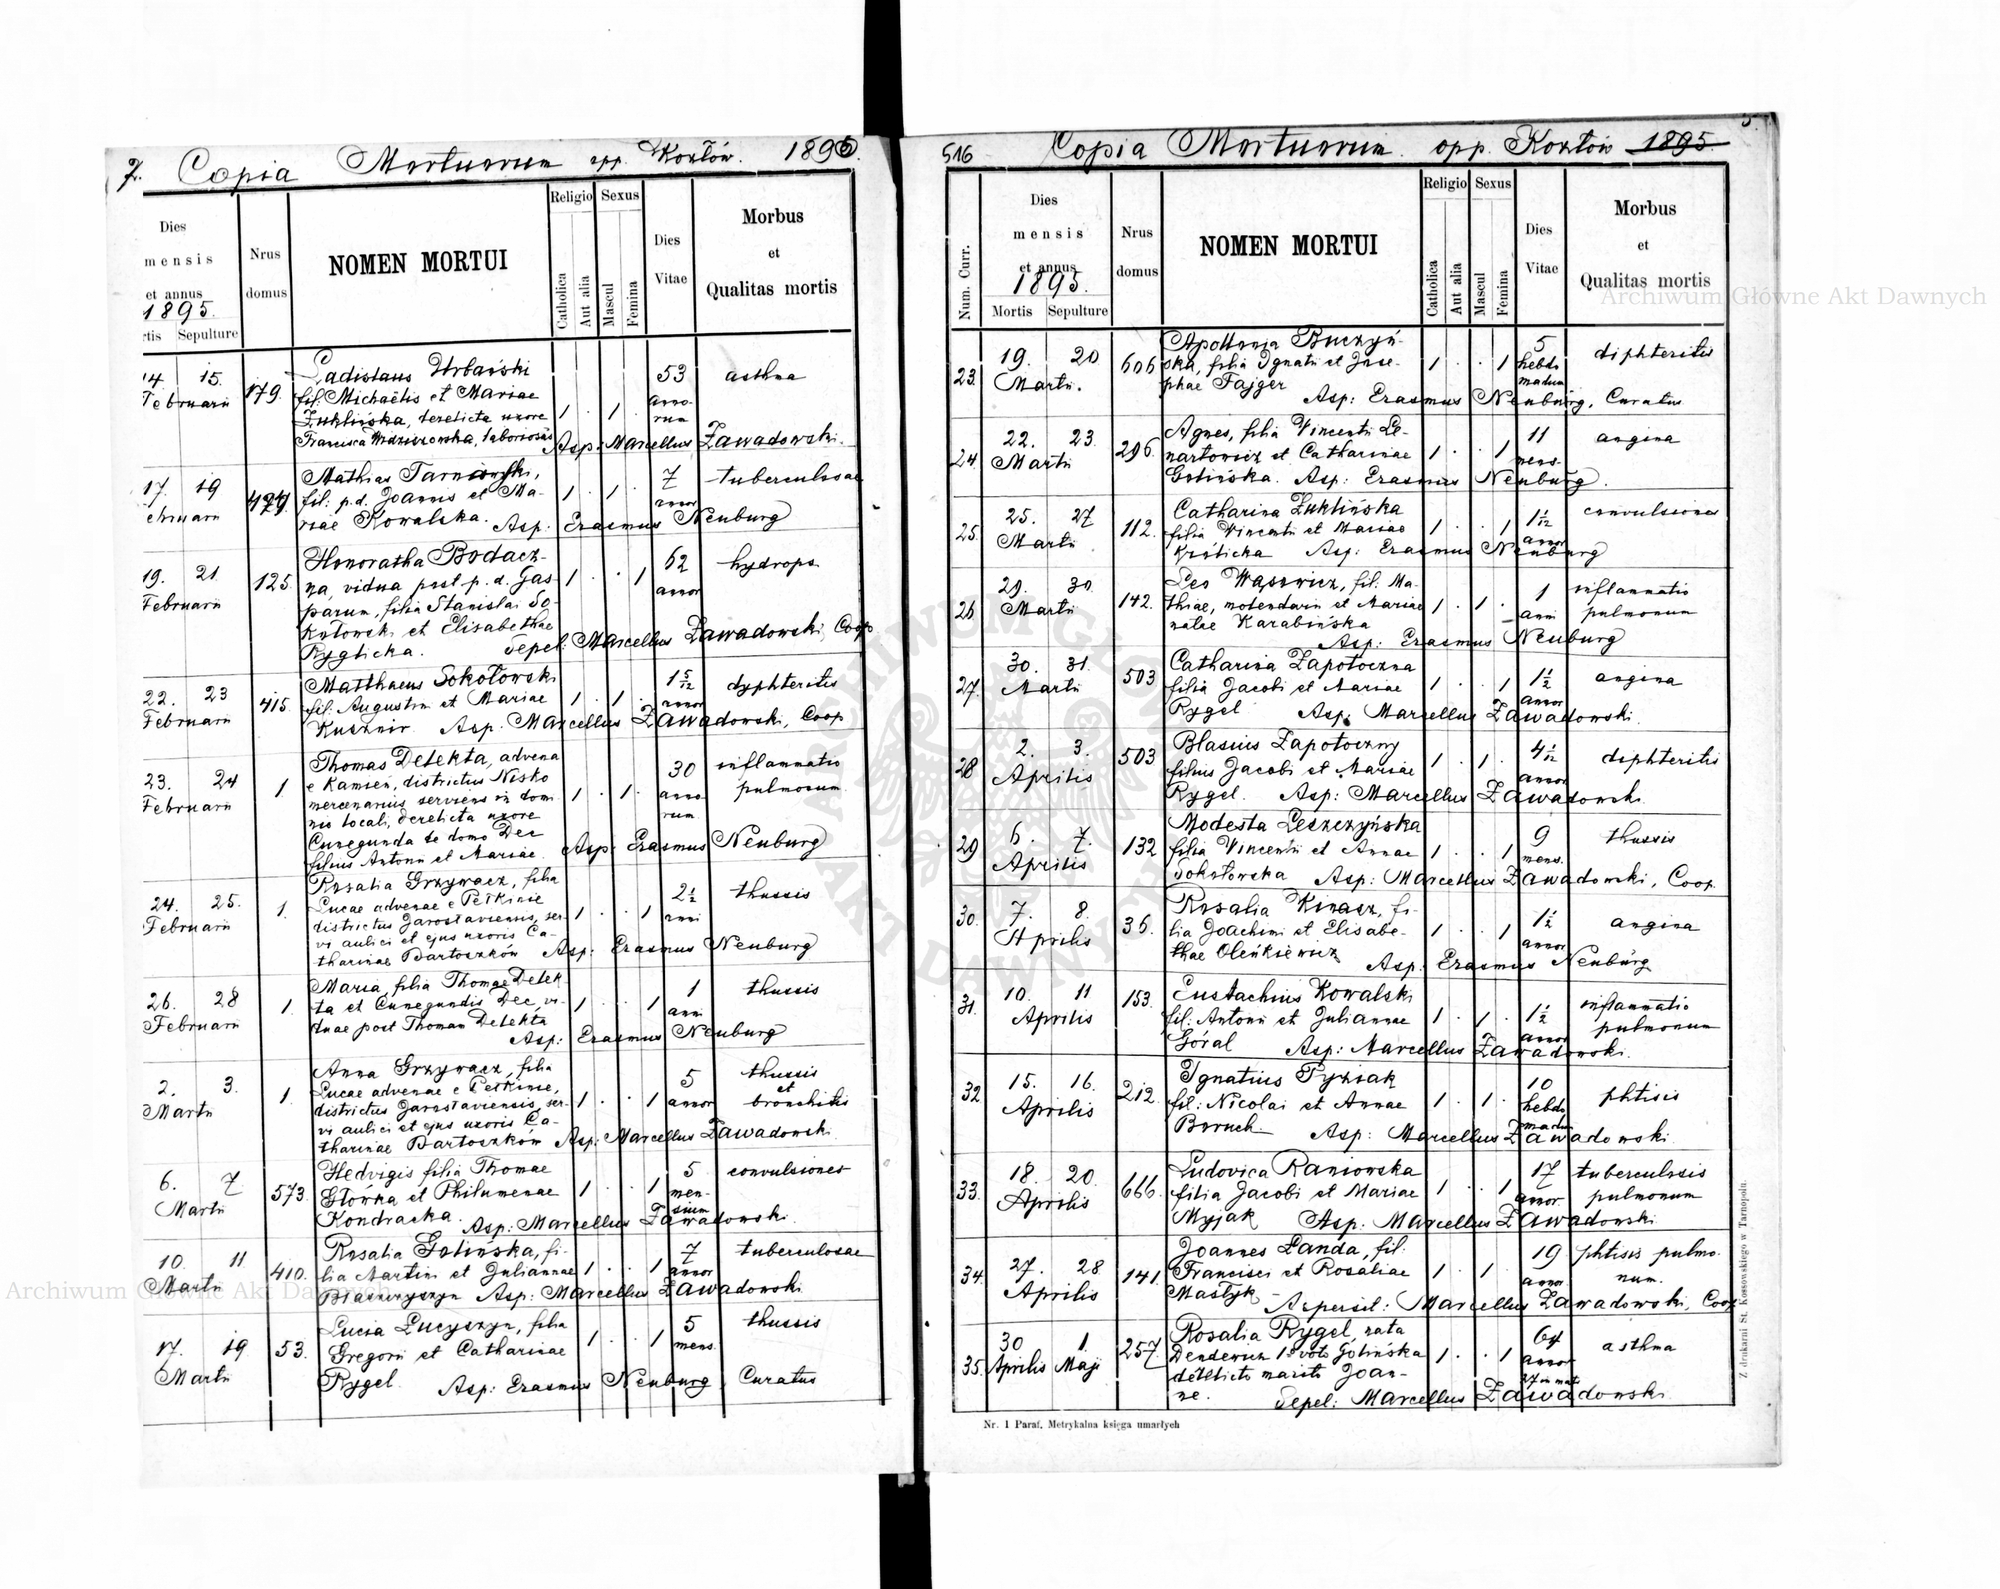 7. Copia Mortuorum opp. Kozłów. 1895.
Dies
mensis
et annus
1895.
Sepulture
Nrus
domus
NOMEN MORTUI
Religio
Catholica
Aut alia
Sexus
Mascul
Femina
Dies
Vitae
Morbus
et
Qualitas mortis
14. 15.
Februarii
179.
Ladislaus Urbański
fil: Michaëlis et Mariae
Żuklińska, derelicta uxore
Francisca
1 . 1 .
53
anno-
rum
asthma
Asp: Marcellus Zawadowski.
17. 19
Mathias Tarnowski,
fil: p.d. Joannis et Ma-
riae Kowalska.
1 . 1 .
7
annor
tuberculosae
Asp: Erasmus Neuburg
19. 21.
Februarii
125.
Honoratha Bodacz-
na, vidua post p. d. Gas-
parum, filia Stanislai So-
kołowski et Elisabethae
Ryglicka.
1 . . 1
62
annor
hydrops
Sepel: Marcellus Zawadowski, Coop
22. 23
Februarii
415.
Matthaeus Sokołowski
fil: Augustini et Mariae
Kusznir
1 . 1 .
1 5/12
annor
dyphteritis
Asp: Marcellus Zawadowski, Coop
23. 24
Februarii
1.
Thomas Delekta, advena
e Kamień, districtus Nisko
mercenarius, serviens in domi
nio locali, derelicta uxore
Cunegunda de domo Dec
filius Antonii et Mariae.
1 . 1 .
30
anno
rum
inflammatio
pulmonum
Asp: Erasmus Neuburg
24. 25.
Februarii
1.
Rosalia Grzywacz, filia
Lucae advenae e Pełkinie
districtus Jaroslaviensis, ser-
vi aulici et ejus uxoris Ca-
tharinae Bartoszków
1 . . 1
2 1/2
anni
thussis
Asp: Erasmus Neuburg
26. 28
Februarii
1.
Maria, filia Thomae Delek-
ta et Cunegundis Dec, vi-
duae post Thomam Delekta
1 . . 1
1
anni
thussis
Asp: Erasmus Neuburg
2. 3.
Martii
1.
Anna Grzywacz, filia
Lucae advenae e Pełkinie,
districtus Jaroslaviensis, ser-
vi aulici et ejus uxoris Ca-
tharinae Bartoszków
1 . . 1
5
annor
thussis
et
bronchitis
Asp: Marcellus Zawadowski.
6. 7
Martii
573.
Hedvigis filia Thomae
Główka et Philumenae
Kondracka.
1 . . 1
5
men-
sium
convulsiones
Asp: Marcellus Zawadowski.
10. 11
Martii
410.
Rosalia Golińska, fi-
lia Martini et Juliannae
Błaszczyszyn
1 . . 1
7
annor
tuberculosae
Asp: Marcellus Zawadowski
17. 19
Martii
53.
Lucia Łucyszyn, filia
Gregorii et Catharinae
Rygel.
1 . . 1
5
mens.
thussis
Asp: Erasmus Neuburg, Curatus
5.
516 Copia Mortuorum opp. Kozłów 1895.
Num. Curr.
Dies
mensis
et annus
1895.
Mortis
Sepulture
Nrus
domus
NOMEN MORTUI
Religio
Catholica
Aut alia
Sexus
Mascul
Femina
Dies
Vitae
Morbus
et
Qualitas mortis
23.
19. 20
Martii.
606
Apollonia Buczyń-
ska, filia Ignatii et Jose-
phae Fajger
1 . . 1
5
hebdo
madum
diphteritis
Asp: Erasmus Neuburg, Curatus
24.
22. 23.
Martii
296.
Agnes, filia Vincentii Le-
nartowicz et Catharinae
Golińska.
1 . . 1
11
mens.
angina
Asp: Erasmus Neuburg.
25.
25. 27
Martii
112.
Catharina Żuklińska
filia Vincentii et Mariae
Królicka
1 . . 1
1 1/12
annor
convulsiones
Asp: Erasmus Neuburg
26
29. 30.
Martii
142.
Leo Wąsowicz, fil: Ma-
thiae, molendarii et Mariae
natae Karabińska
1 . 1 .
1
anni
inflammatio
pulmonum
Asp: Erasmus Neuburg
27.
30. 31.
Martii
503
Catharina Zapotoczna
filia Jacobi et Mariae
Rygel
1 . . 1
1 1/2
annor
angina
Asp: Marcellus Zawadowski.
28
2. 3.
Aprilis
503
Blasius Zapotoczny
filius Jacobi et Mariae
Rygel.
1 . 1 .
4 1/12
annor
diphteritis
Asp: Marcellus Zawadowski.
29
6. 7.
Aprilis
132
Modesta Leszczyńska
filia Vincentii et Annae
Sokołowska
1 . . 1
9
mens.
thussis
Asp: Marcellus Zawadowski, Coop.
30.
7. 8.
Aprilis
36.
Rosalia Kinasz, fi-
lia Joachimi et Elisabe-
thae Oleńkiewicz
1 . . 1
1 1/2
annor
angina
Asp: Erasmus Neuburg
31.
10. 11
Aprilis
153.
Eustachius Kowalski
fil: Antonii et Juliannae
Góral
1 . 1 .
1 1/2
annor
inflammatio
pulmonum
Asp: Marcellus Zawadowski.
32
15. 16.
Aprilis
212.
Ignatius Pyziak
fil: Nicolai et Annae
Boruch
1 . 1 .
10
hebdo
madum
phtisis
Asp: Marcellus Zawadowski.
33.
18. 20.
Aprilis
666.
Ludovica Raniowska
filia Jacobi et Mariae
Myjak
1 . . 1
17
annor.
tuberculosis
pulmonum
Asp: Marcellus Zawadowski
34.
27. 28
Aprilis
141.
Joannes Landa, fil:
Francisci et Rosaliae
Mastyk
1 . 1 .
19
annor.
phtisis pulmo-
num.
Aspersit: Marcellus Zawadowski, Coop
35.
30 1.
Aprilis Maji
257.
Rosalia Rygel, nata
Denderwicz 1º voto Golińska
derelicto marito Joan-
ne.
1 . . 1
64
annor
asthma
Sepel: Marcellus Zawadowski.
Nr. 1 Paraf. Metrykalna księga umarłych
Z drukarni St. Kossowskiego w Tarnopolu.
Archiwum Główne Akt Dawnych
Archiwum Główne Akt Dawnych
ARCHIWUM GŁÓWNE AKT DAWNYCH